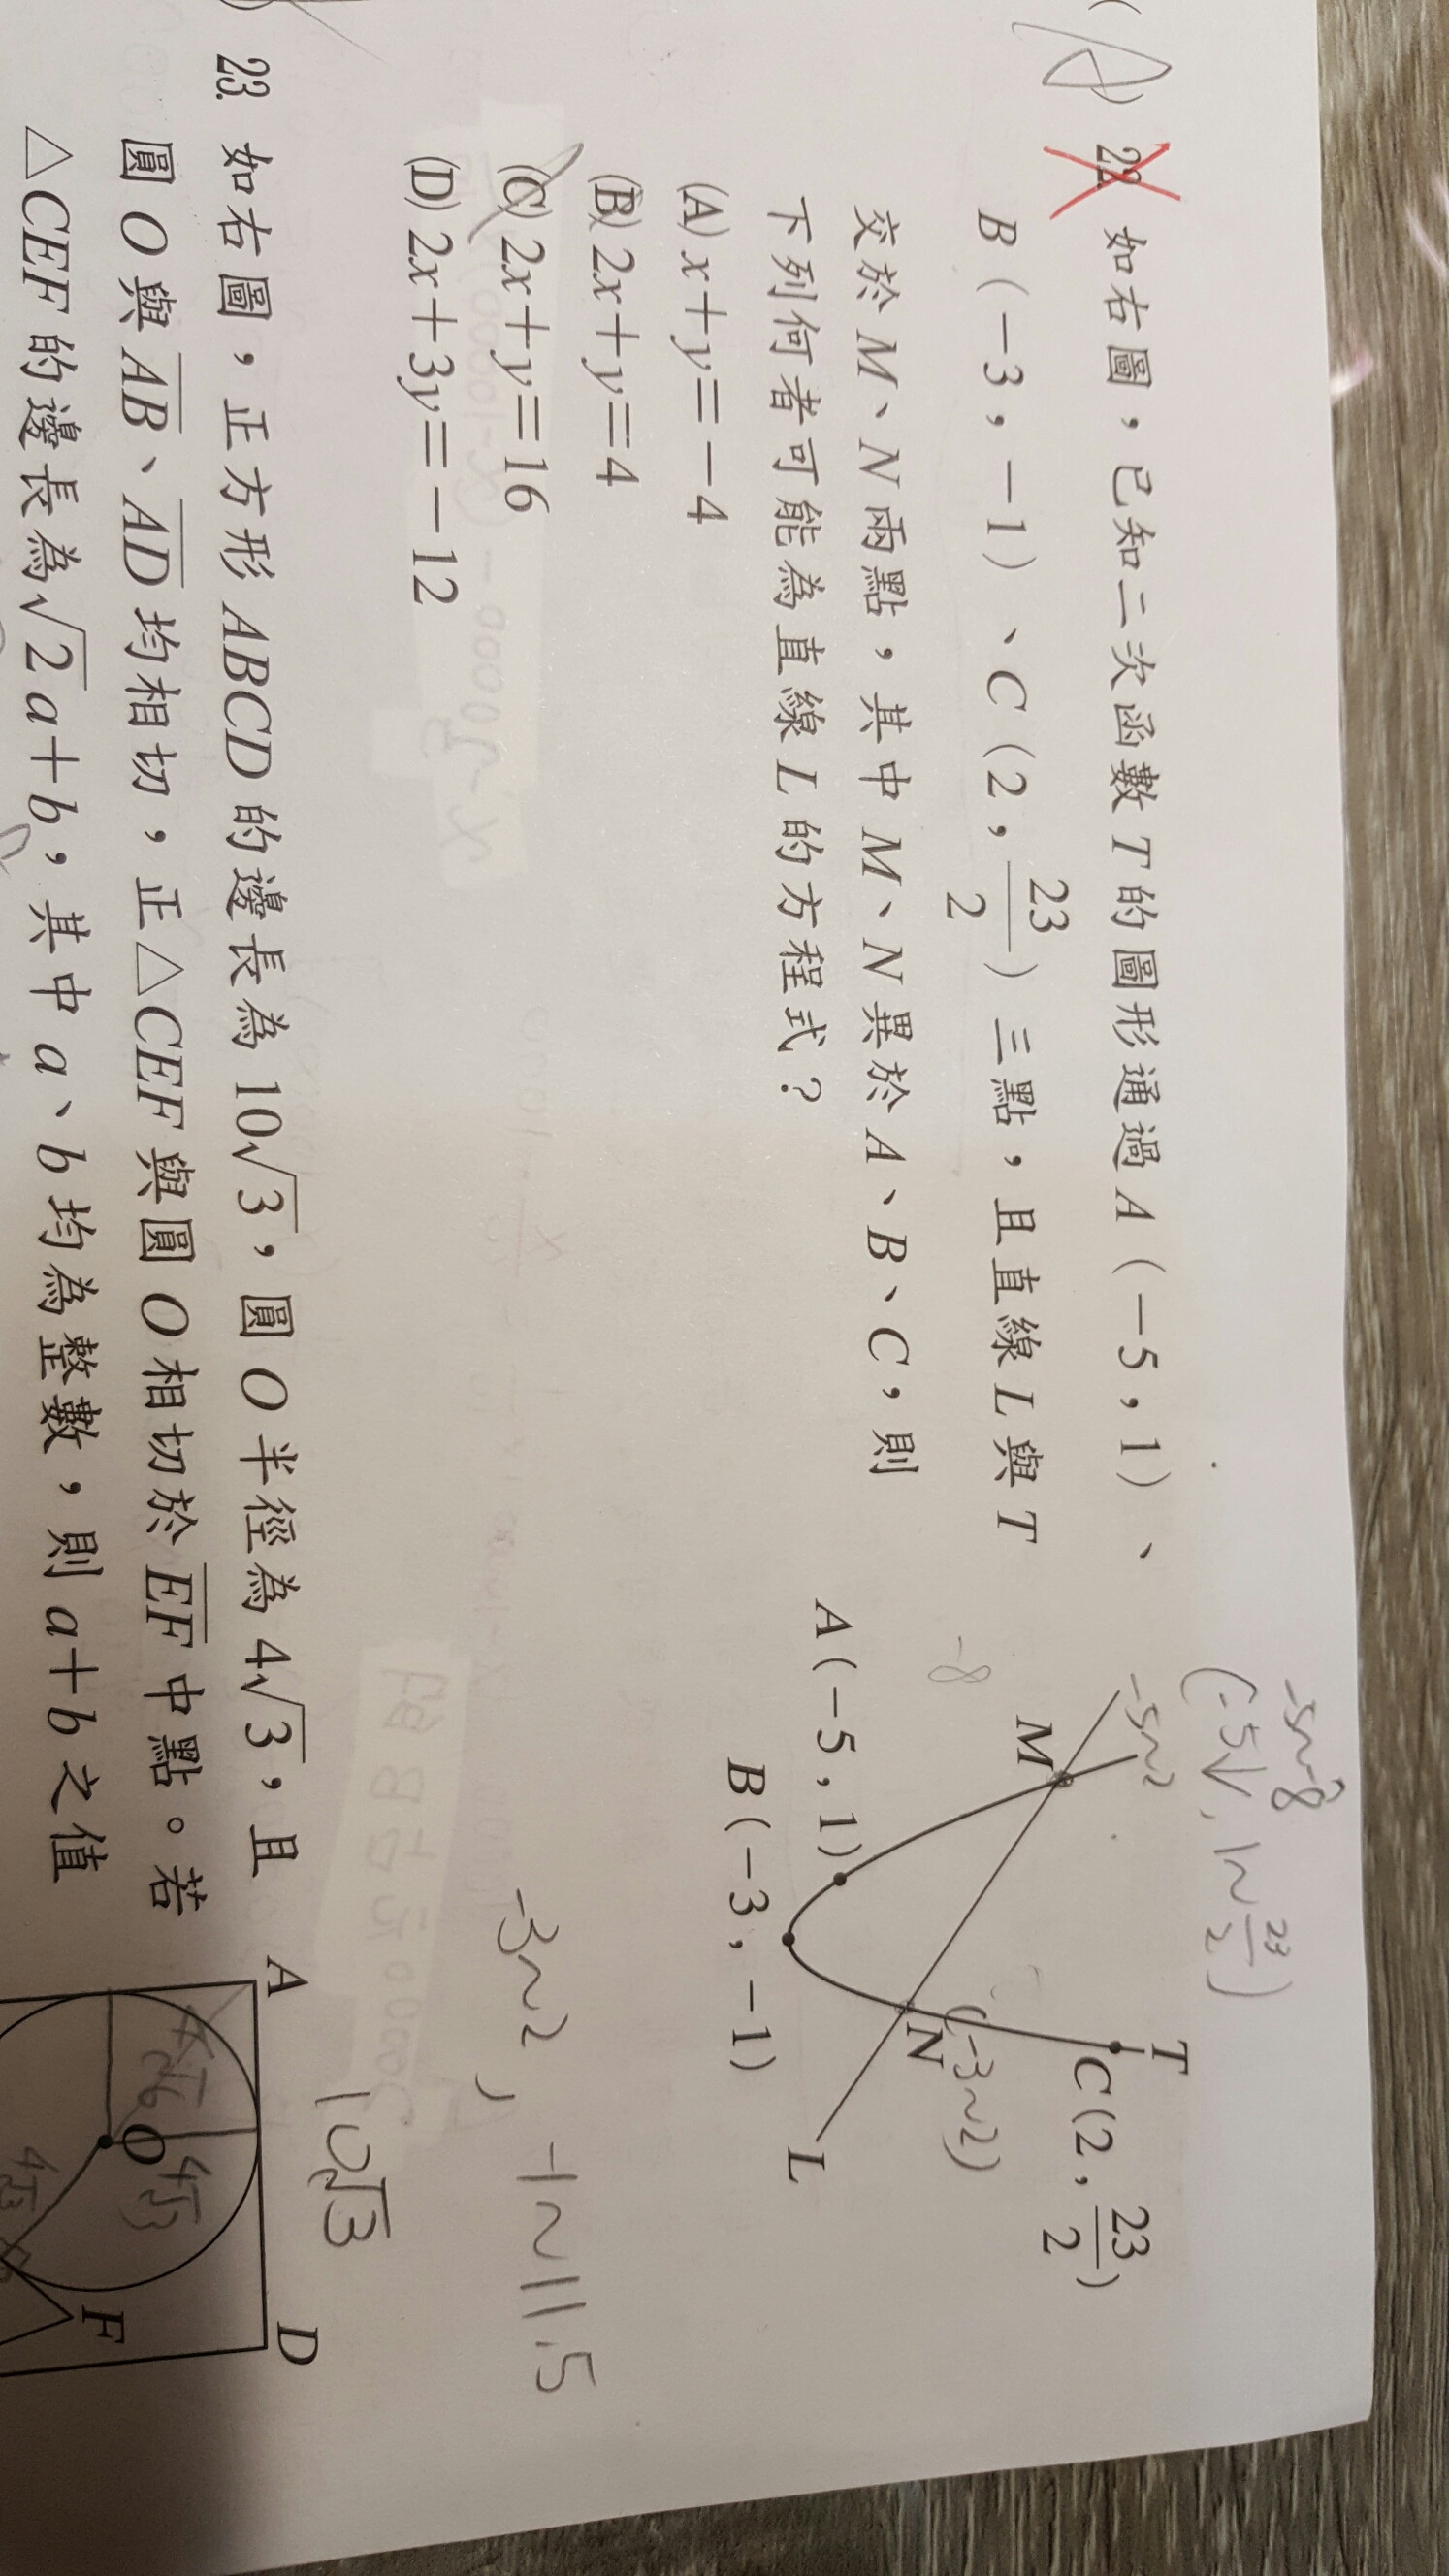 22. 如右圖，已知二次函數 T 的圖形通過 A（－5，1）、
B（－3，－1）、C（2，23/2）三點，且直線 L 與 T
交於 M、N 兩點，其中 M、N 異於 A、B、C，則
下列何者可能為直線 L 的方程式？
(A) x＋y＝－4
(B) 2x＋y＝4
(C) 2x＋y＝16
(D) 2x＋3y＝－12
-5~-8
(-5↓, 1~23/2)
-5~2
-8
M
T
C(2，23/2)
A(－5，1)
N
(-3~2)
B(－3，－1)
L
-3~2, -1~11.5
23. 如右圖，正方形 ABCD 的邊長為 10√3，圓 O 半徑為 4√3，且
圓 O 與 AB、AD 均相切，正△CEF 與圓 O 相切於 EF 中點。若
△CEF 的邊長為√2 a＋b，其中 a、b 均為整數，則 a＋b 之值
10√3
A
D
4√6
4√3
O
4√3
F